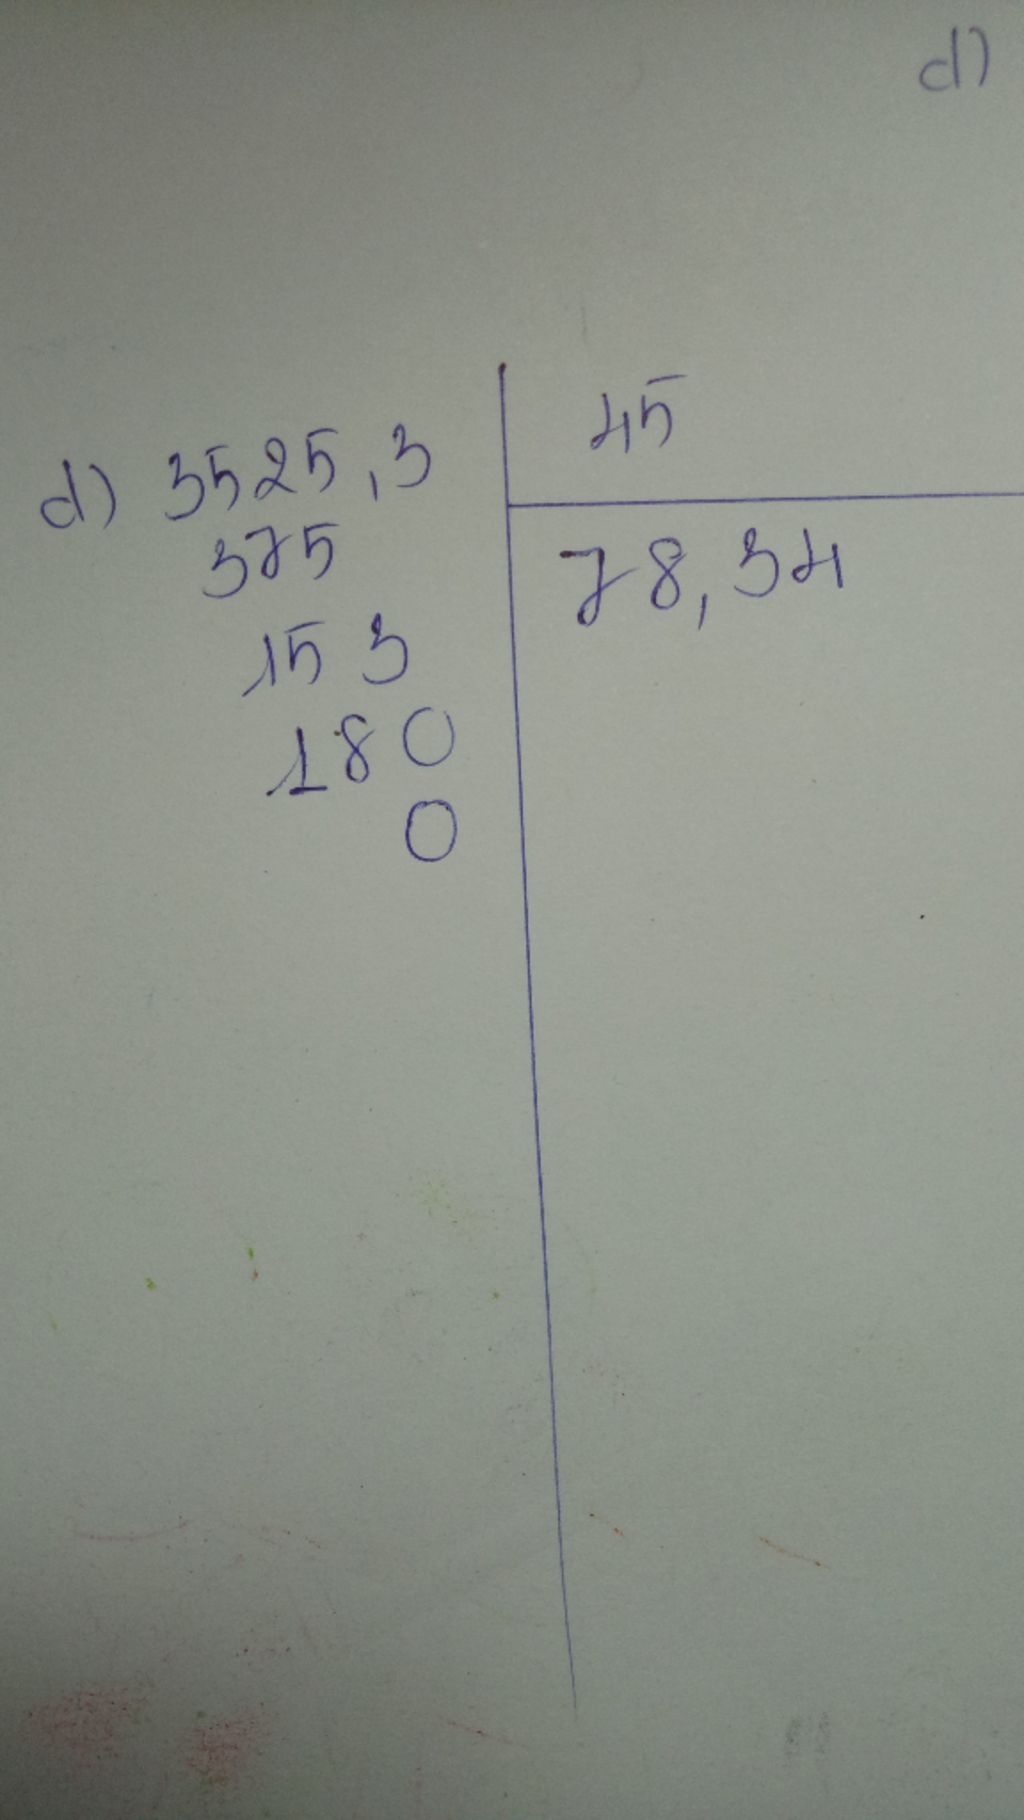 d)
45
d) 3525,3
375
78,34
153
180
0